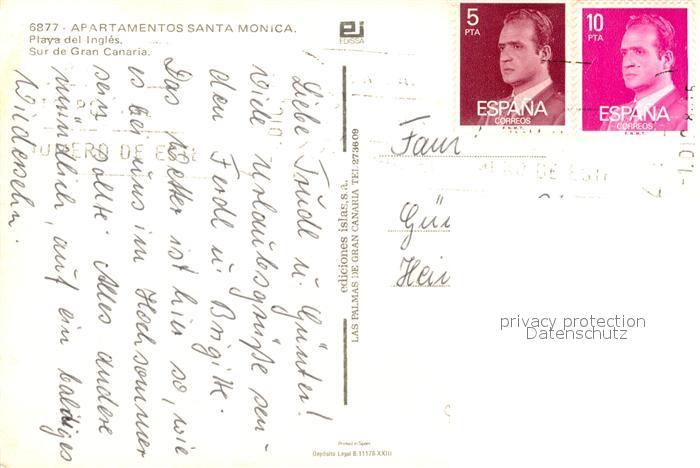 6877 - APARTAMENTOS SANTA MONICA.
Playa del Inglés.
Sur de Gran Canaria.
EDISSA
5
PTA
ESPAÑA
CORREOS
F.N.M.T.
10
PTA
ESPAÑA
CORREOS
F.N.M.T.
Liebe Trudl u. Günter!
Viele Urlaubsgrüße sen-
den Ferdl u. Brigitte.
Das Wetter ist hier so, wie
es bei uns im Hochsommer
sein sollte. Alles andere
mündlich, auf ein baldiges
Wiedersehn.
ediciones islas,s.a.
LAS PALMAS DE GRAN CANARIA TEL.273609
Fam
Gü
Hei
privacy protection
Datenschutz
Printed in Spain
Depósito Legal B.11178-XXIII